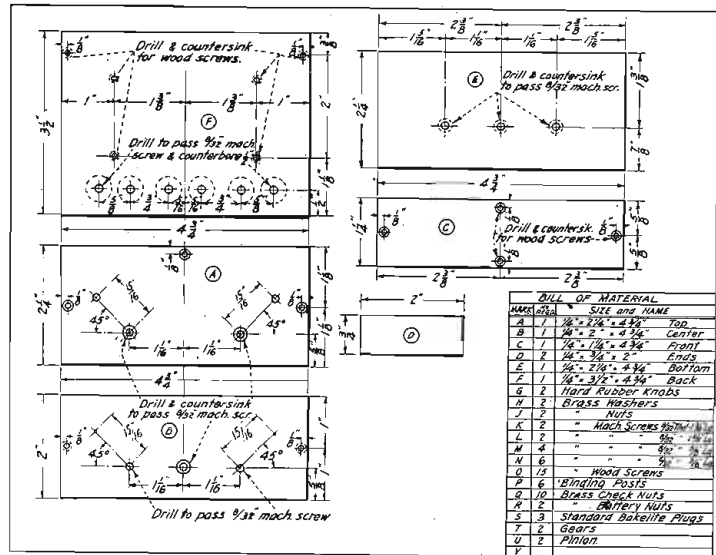 Drill & countersink
for wood screws.
1/8"
1/8"
3/8"
1"
1 3/8"
1 3/8"
1"
2"
3 1/2"
F
Drill to pass 8/32 mach.
screw & counterbore
1 1/8"
1/2"
5/8"
3/4"
3/4"
5/8"
4 3/4"
A
1/8"
1/8"
1/8"
15/16"
15/16"
45°
45°
2 1/4"
1 1/8"
1 1/8"
5/8"
1 1/16"
1 1/16"
4 3/4"
Drill & countersink
to pass 8/32 mach. scr.
B
1/8"
1/8"
15/16"
15/16"
45°
45°
2"
1"
1"
5/8"
1 1/16"
1 1/16"
Drill to pass 8/32" mach. screw
2 3/8"
2 3/8"
1 5/16"
1 1/16"
1 1/16"
1 5/16"
E
Drill & countersink
to pass 8/32 mach. scr.
2 1/4"
1 3/8"
7/8"
4 3/4"
1 1/4"
1/8"
C
1/8"
Drill & countersink
for wood screws
1/8"
5/8"
5/8"
2 3/8"
2 3/8"
2"
3/4"
D
BILL OF MATERIAL
MARK SIZE and NAME
A 1 1/4" × 2 1/4" × 4 3/4" Top
B 1 1/4" × 2" × 4 3/4" Center
C 1 1/4" × 1 1/4" × 4 3/4" Front
D 2 1/4" × 3/4" × 2" Ends
E 1 1/4" × 2 1/4" × 4 3/4" Bottom
F 1 1/4" × 3 1/2" × 4 3/4" Back
G 2 Hard Rubber Knobs
H 2 Brass Washers
J 2 " Nuts
K 2 " Mach. Screws
L 2 " " "
M 4 " " "
N 6 " " "
O 15 " Wood Screws
P 6 Binding Posts
Q 10 Brass Check Nuts
R 2 " Battery Nuts
S 3 Standard Bakelite Plugs
T 2 Gears
U 2 Pinion
V